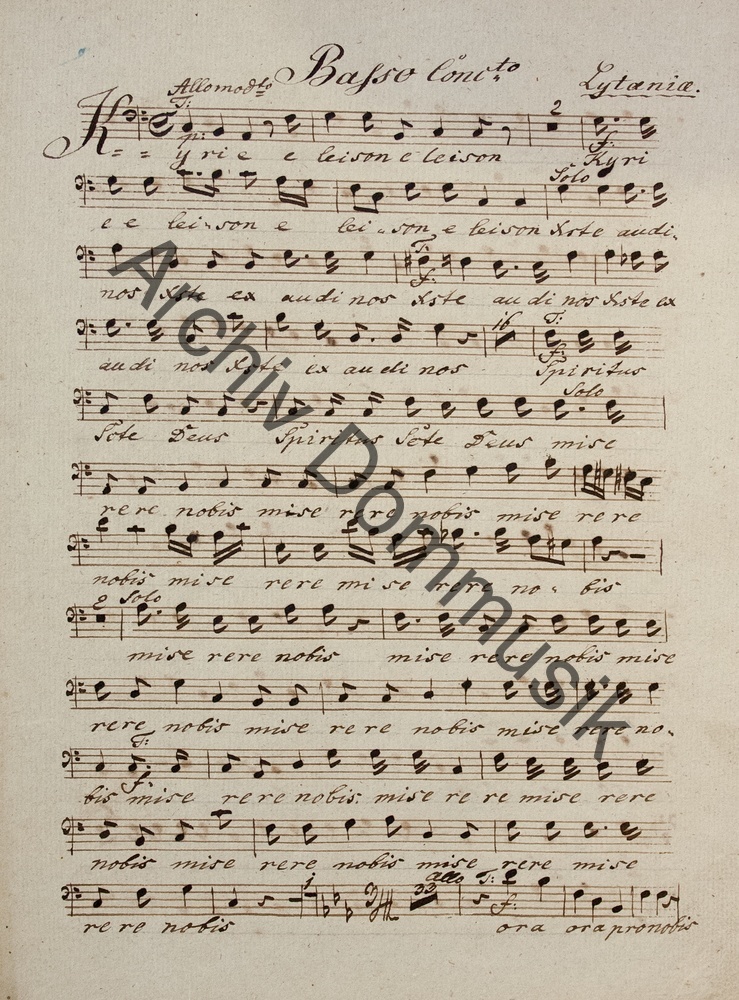 Basso Conc:to Lytaniæ.
Allo mod:to
T:
2
p: f:
Kyrie e leison e leison Kyri
Solo
e e lei-son e lei-son e leison Xste audi-
T:
f:
nos Xste ex audi nos Xste audi nos Xste ex
16 T:
f:
audi nos Xste ex audi nos Spiritus
Solo
Scte Deus Spiritus Scte Deus mise
rere nobis mise rere nobis mise rere
nobis mise rere mise rere no-bis
2 Solo
mise rere nobis mise rere nobis mise
rere nobis mise rere nobis mise rere no-
T:
f:
bis mise rere nobis: mise re re mise rere
nobis mise rere nobis mise rere mise
33 Allo T:
f:
rere nobis ora ora pro nobis
Archiv Dommusik